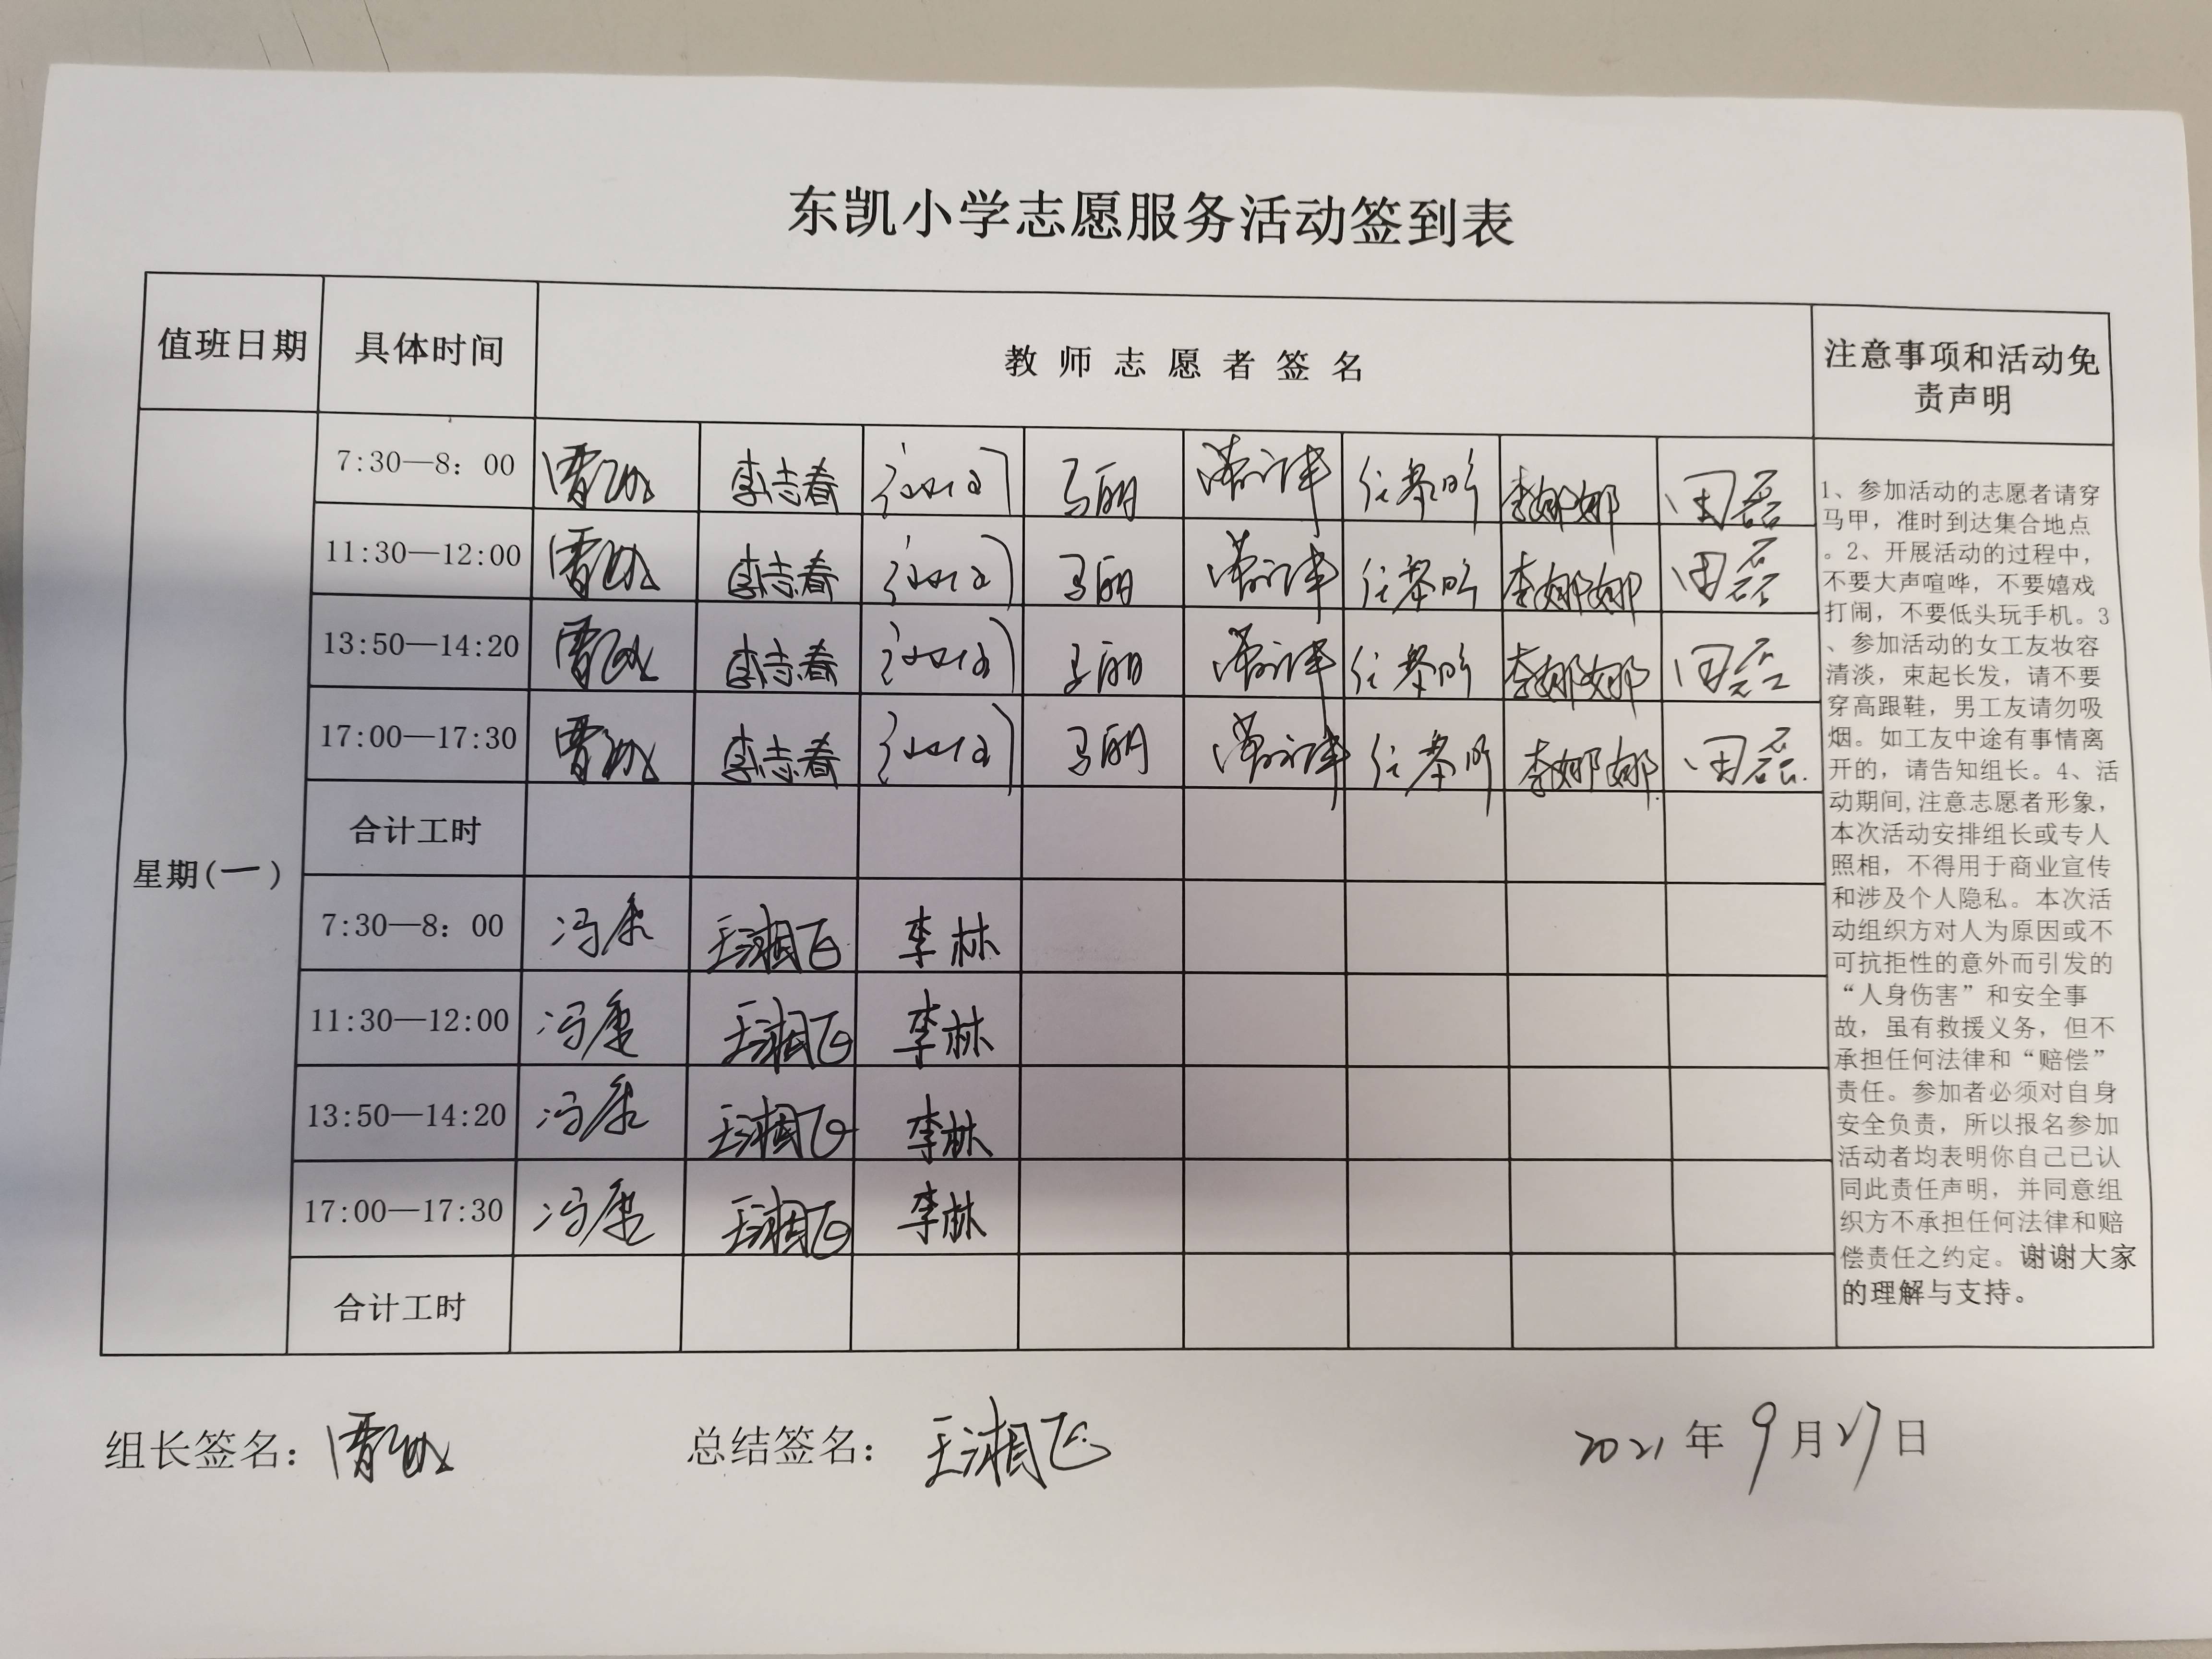 东凯小学志愿服务活动签到表
值班日期 具体时间 教师志愿者签名 注意事项和活动免
责声明
7:30—8：00 李志春 马丽 李娜娜 田磊
11:30—12:00 李志春 马丽 李娜娜 田磊
13:50—14:20 李志春 马丽 李娜娜 田磊
17:00—17:30 李志春 马丽 李娜娜 田磊
合计工时
星期(一)
7:30—8：00 冯康 王湘飞 李林
11:30—12:00 冯康 王湘飞 李林
13:50—14:20 冯康 王湘飞 李林
17:00—17:30 冯康 王湘飞 李林
合计工时
1、参加活动的志愿者请穿
马甲，准时到达集合地点
。2、开展活动的过程中，
不要大声喧哗，不要嬉戏
打闹，不要低头玩手机。3
、参加活动的女工友妆容
清淡，束起长发，请不要
穿高跟鞋，男工友请勿吸
烟。如工友中途有事情离
开的，请告知组长。4、活
动期间,注意志愿者形象，
本次活动安排组长或专人
照相，不得用于商业宣传
和涉及个人隐私。本次活
动组织方对人为原因或不
可抗拒性的意外而引发的
“人身伤害”和安全事
故，虽有救援义务，但不
承担任何法律和“赔偿”
责任。参加者必须对自身
安全负责，所以报名参加
活动者均表明你自己已认
同此责任声明，并同意组
织方不承担任何法律和赔
偿责任之约定。谢谢大家
的理解与支持。
组长签名： 总结签名：王湘飞 2021年9月27日